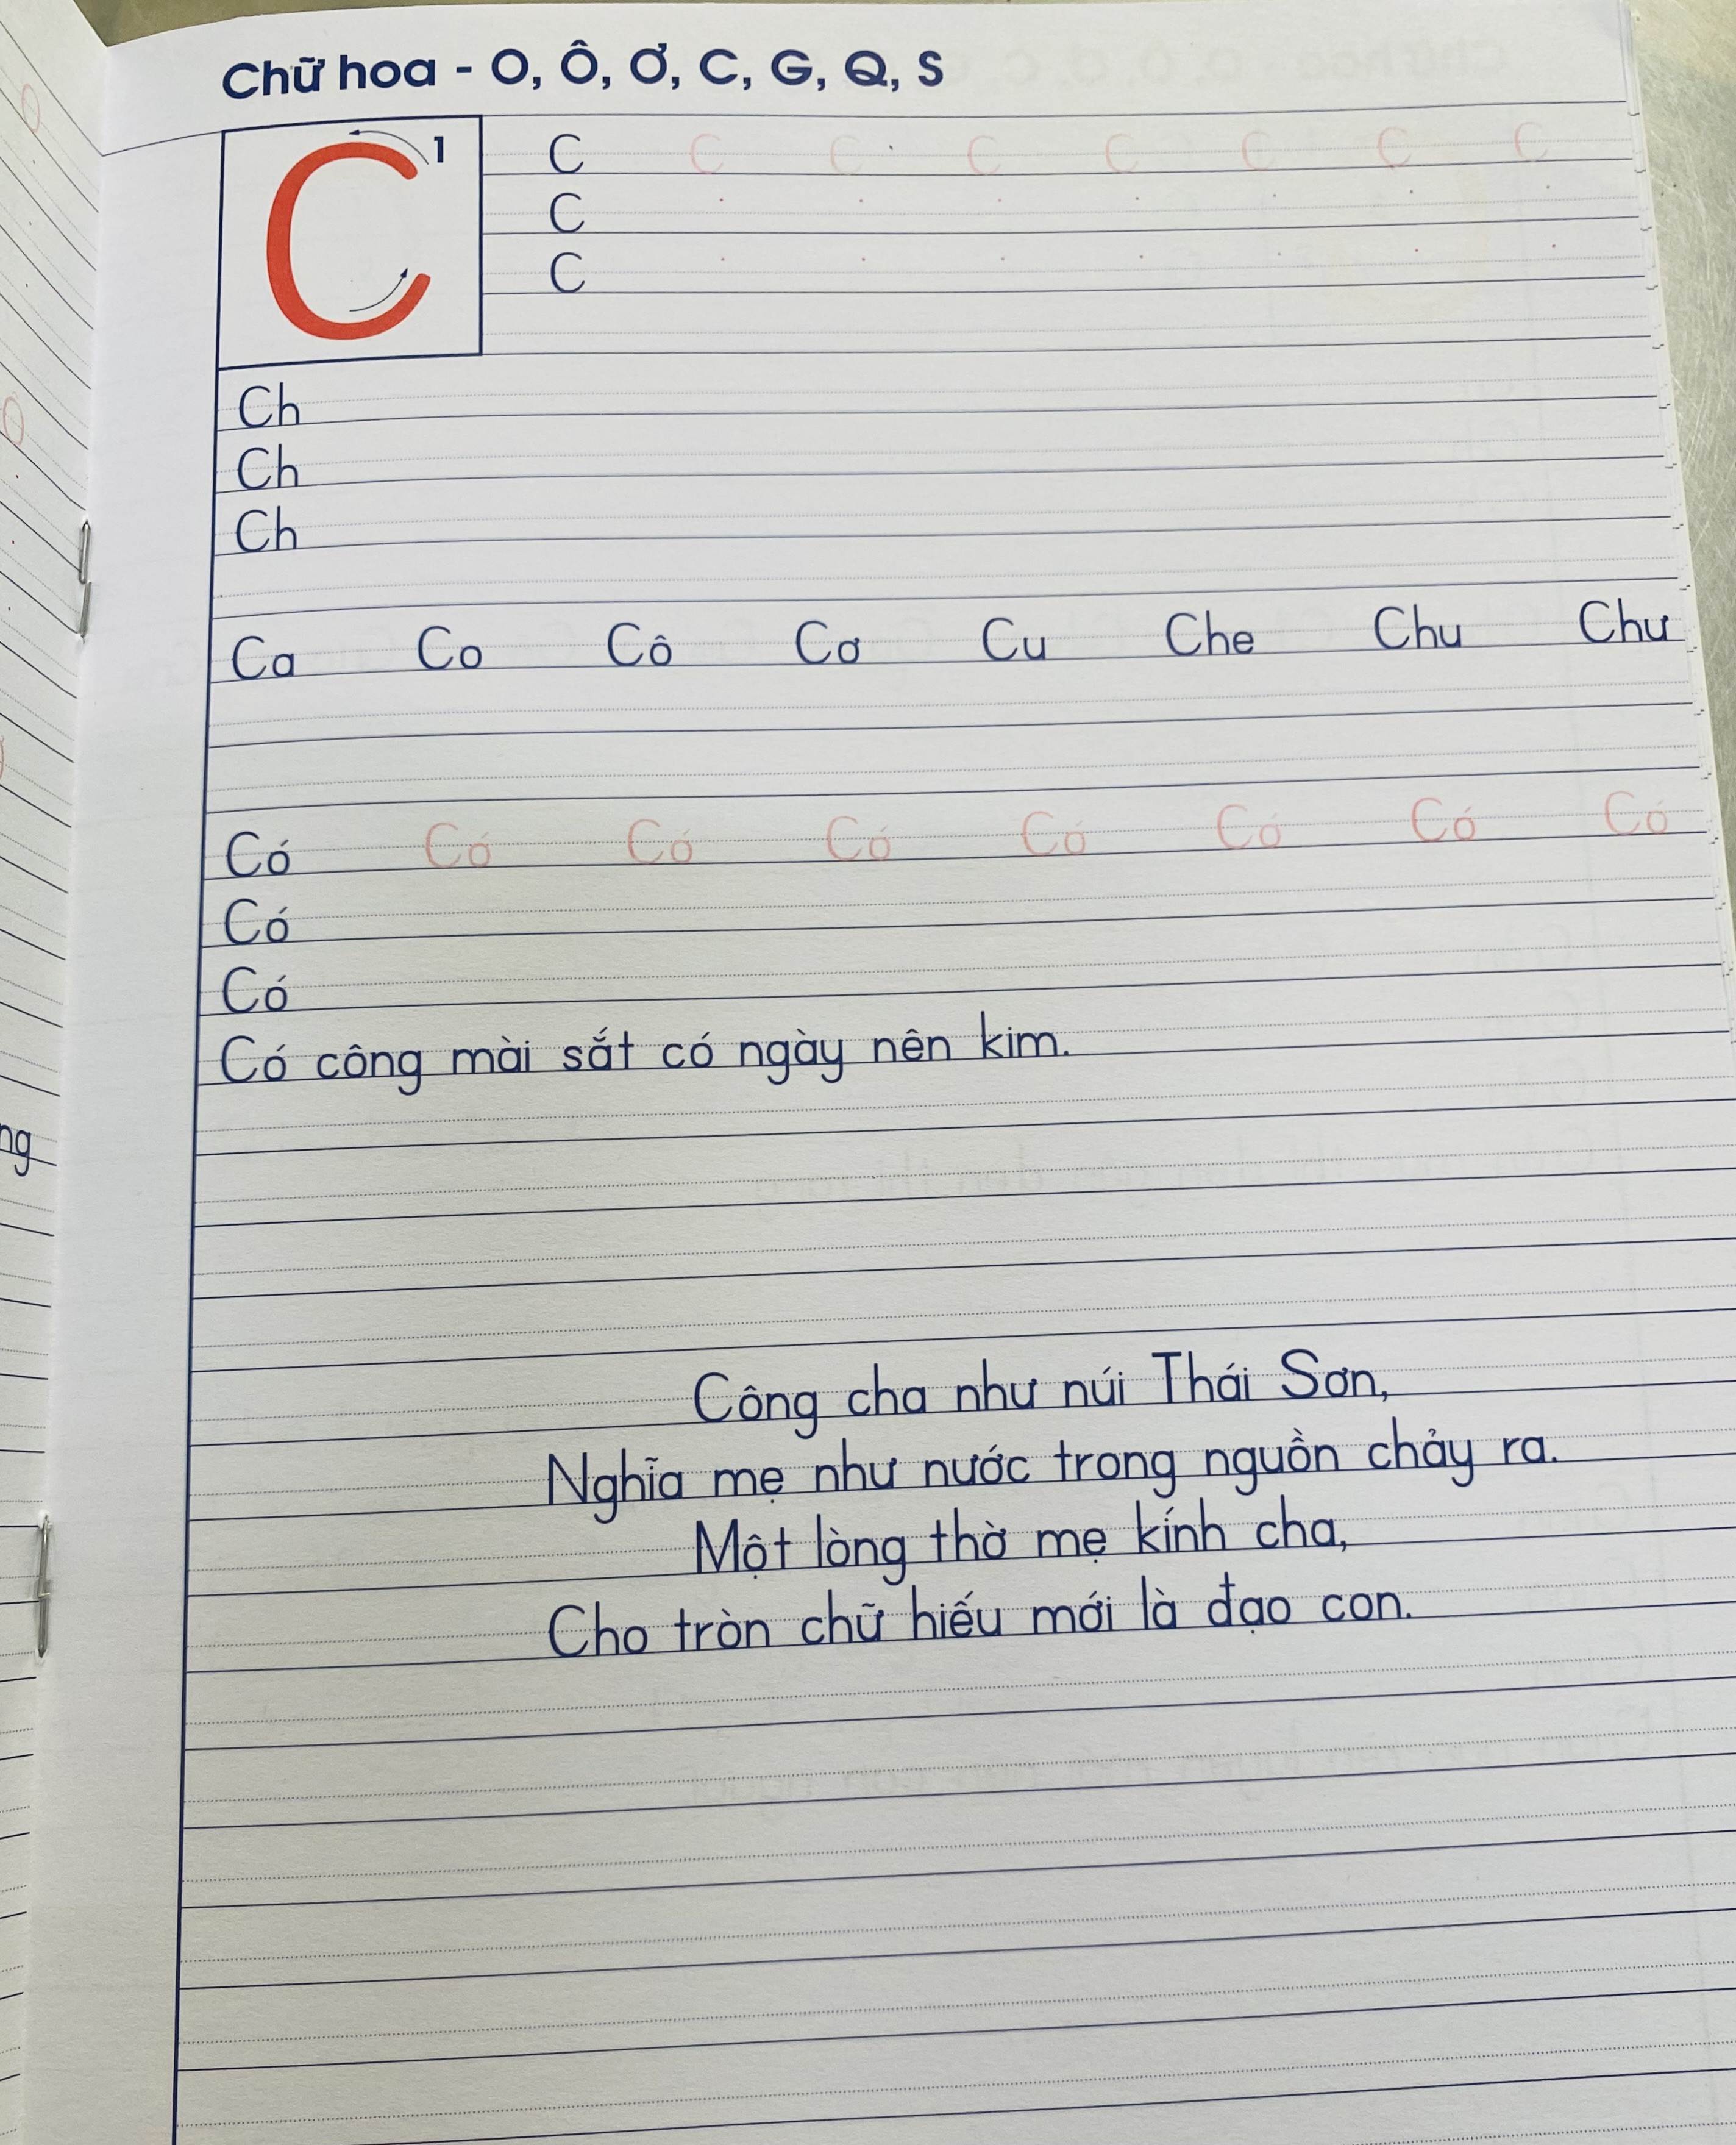 Chữ hoa - O, Ô, Ơ, C, G, Q, S
C 1
C C C C C C C C
C
C
Ch
Ch
Ch
Ca Co Cô Cơ Cu Che Chu Chư
Có Có Có Có Có Có Có Có
Có
Có
Có công mài sắt có ngày nên kim.
ng
Công cha như núi Thái Sơn,
Nghĩa mẹ như nước trong nguồn chảy ra.
Một lòng thờ mẹ kính cha,
Cho tròn chữ hiếu mới là đạo con.